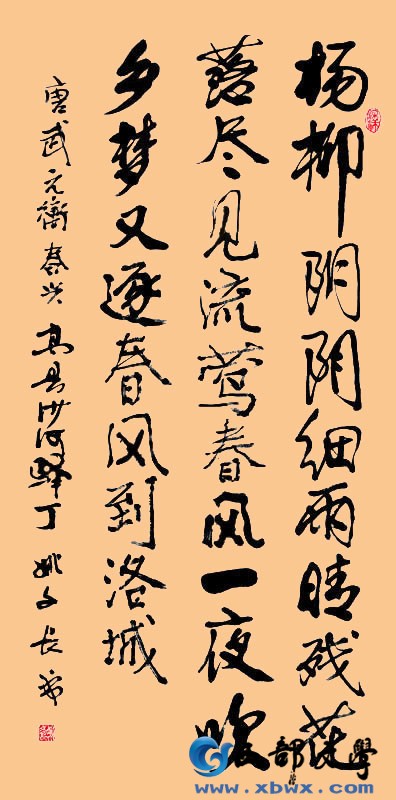 杨柳阴阴细雨晴残花
落尽见流莺春风一夜吹
乡梦又逐春风到洛城
唐武元衡春兴 高县沙河驿丁 姚文长
www.xbwx.com